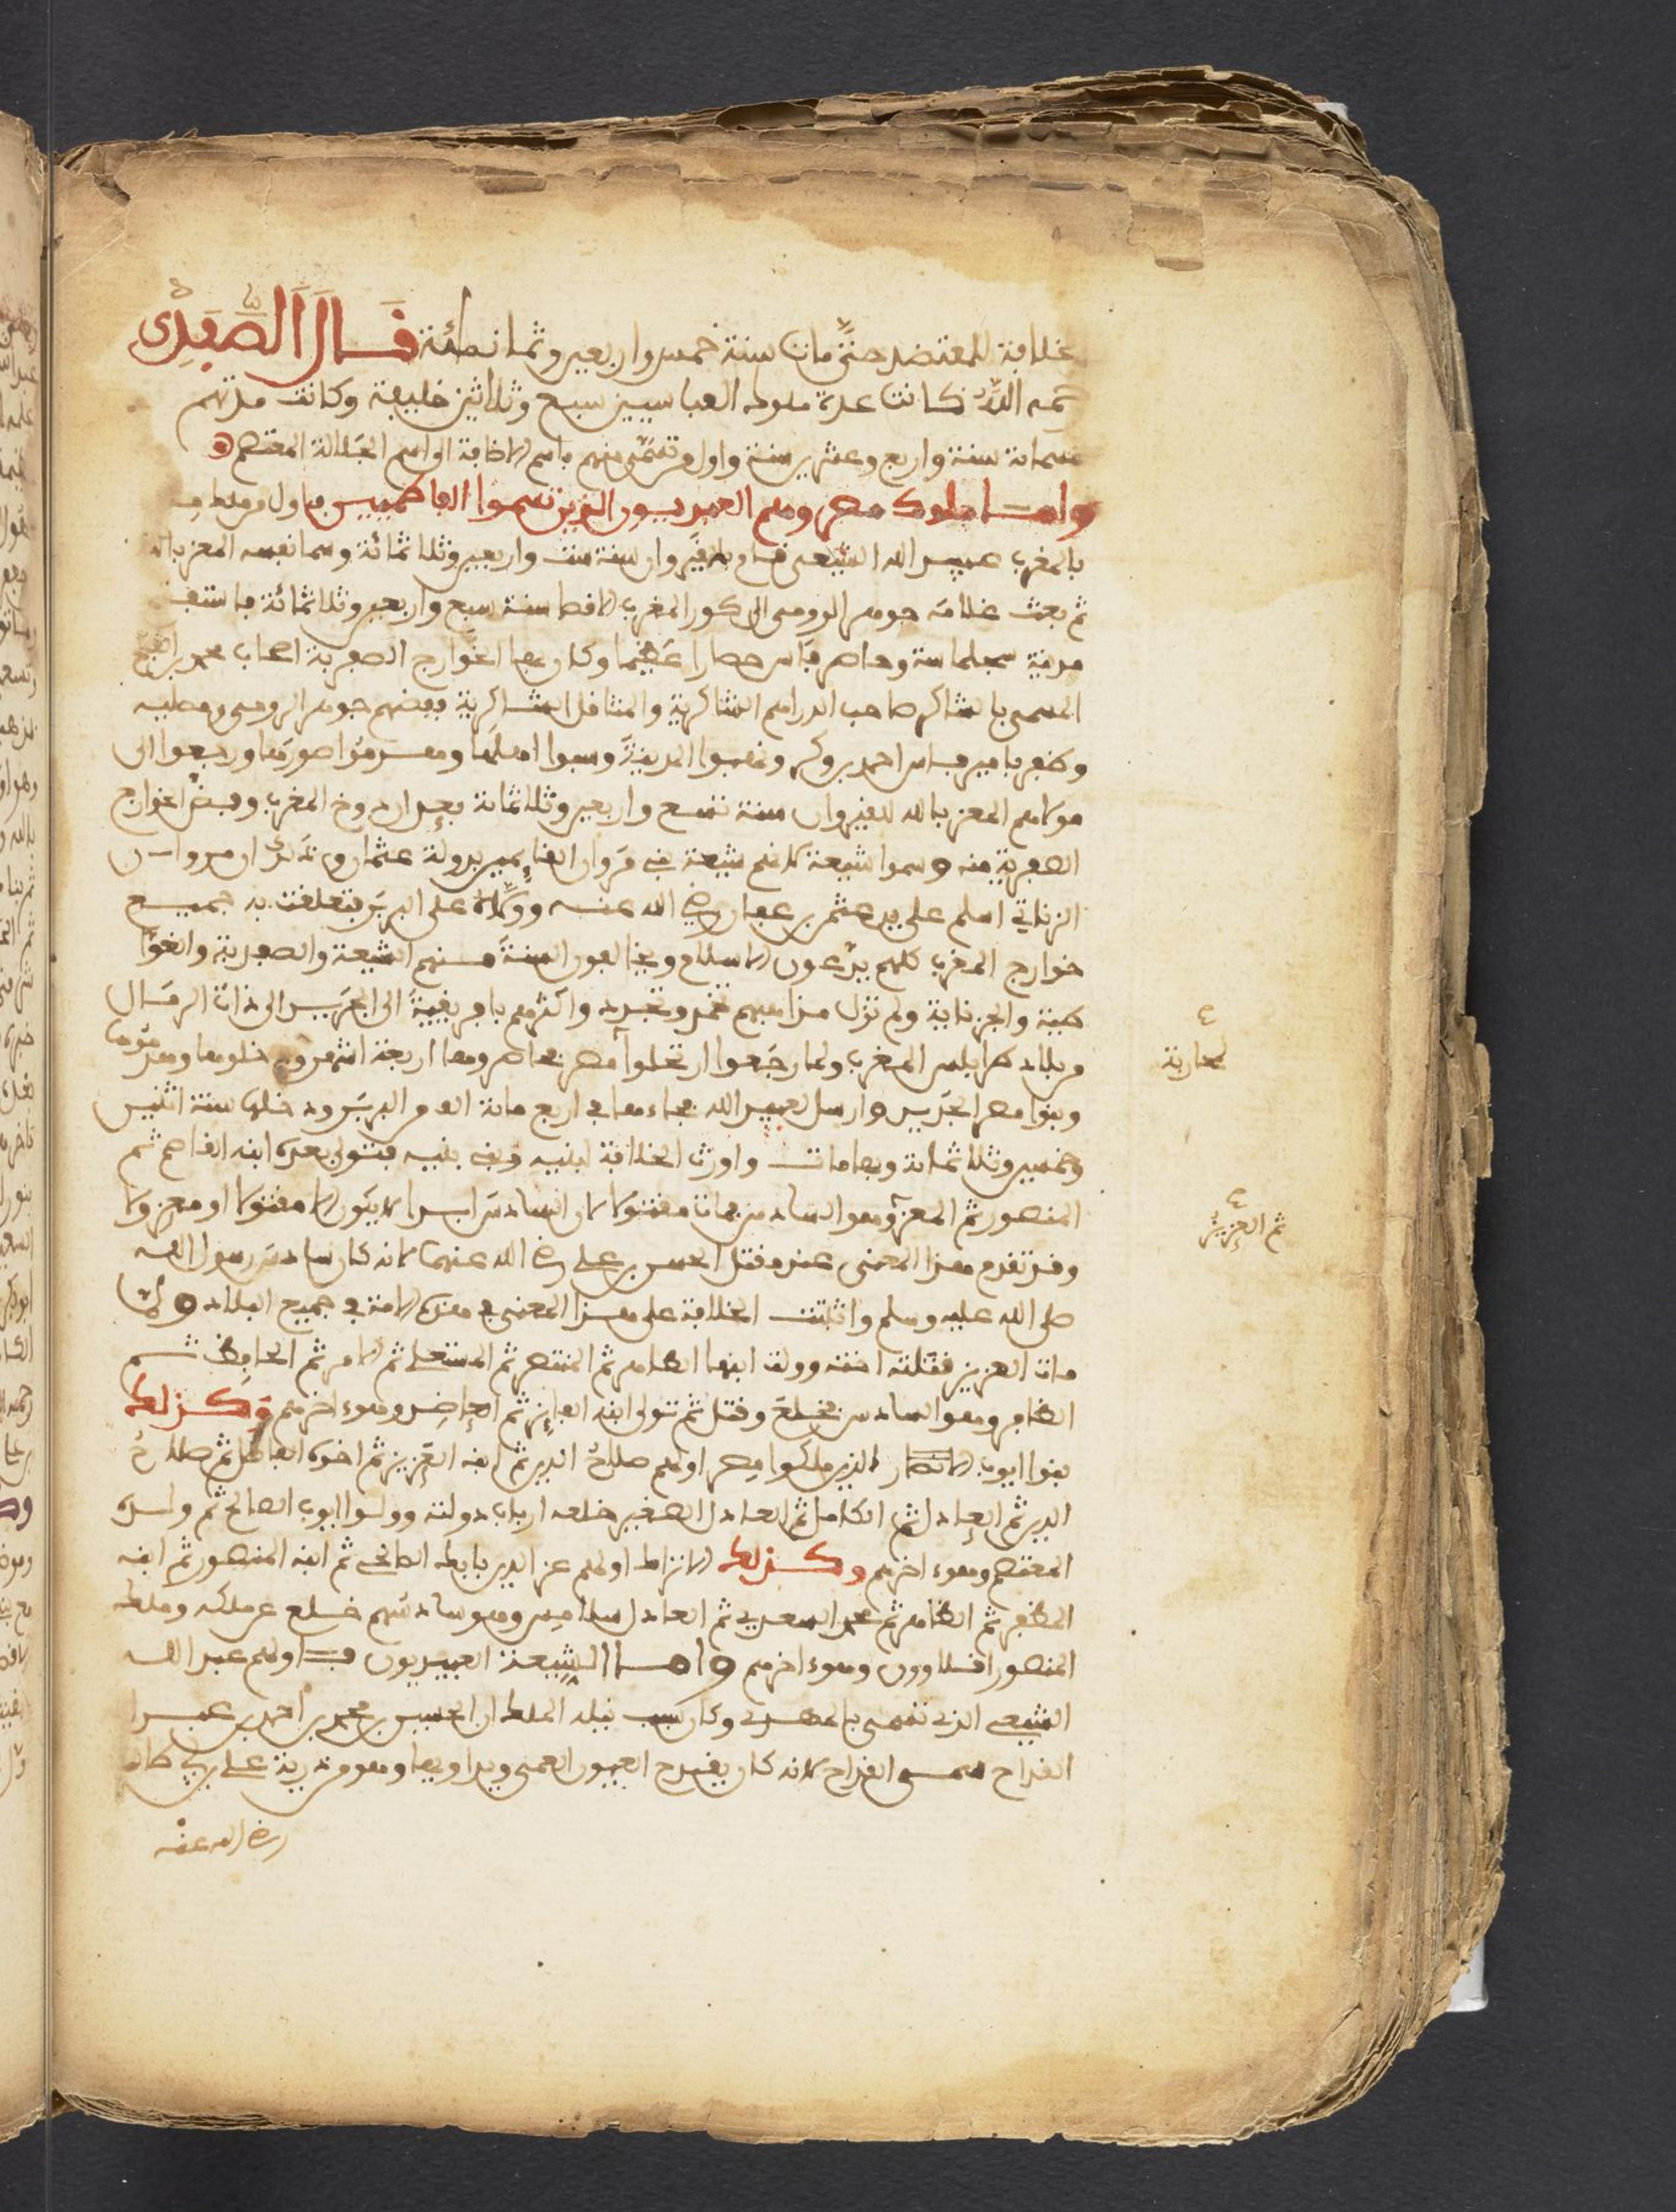 خلافة المعتضد حتى مات سنة خمس واربعين وثمانمائة قال الصفدي
رحمه الله كانت عدة ملوك العباسيين سبع وثلاثين خليفة وكانت مدتهم
خمسمائة سنة واربع وعشرين سنة واول من تسمى منهم باسم الاضافة الى اسم الجلالة المعتصم
واما ملوك مصر وهم العبيديون الذين تسموا الفاطميين فاول من ملك
بالمغرب عبيد الله الشيعي قام بالقيروان سنة ست واربعين وثلاثمائة وسما نفسه المعز بالله
ثم بعث غلامه جوهر الرومي الى كور المغرب الاقصا سنة سبع واربعين وثلاثمائة
مدينة سجلماسة وحاصر فاس حصارا عظيما وكان بها الخوارج الصفرية اصحاب محمد بن
المسمى بالشاكر صاحب الدراهم الشاكرية والمثاقل الشاكرية فقبضهم جوهر الرومي
وظفر بامير فاس احمد بن بكر ونهبوا المدينة وسبوا اهلها وهدموا اصورها ورجعوا الى
مولاهم المعز بالله للقيروان سنة تسع واربعين وثلاثمائة بعد ان دوخ المغرب وقبض الخوارج
الصفرية منه وسموا شيعة لانهم شيعة بني مروان القائمين بدولة عثمان
الزناتي اسلم على يد عثمان بن عفان رضي الله عنه وولاه على البربر فتعلقت به جميع
خوارج المغرب كلهم يدعون الاسلام ويخالفون السنة منهم الشيعة والصفرية
والجزناية ولم تزل مذاهبهم واكثرهم بافريقية الى الجريد الى ذات الرمال
من بلاد طرابلس المغرب ولما رجعوا ارتحلوا مصر فحاصروها اربعة اشهر ودخلوها وهدموها
وبنوا مصر الجديد وارسل لعبيد الله فجاءها في اربع مائة الف من البربر ودخلها سنة اثنين
وخمسين وثلاثمائة وبها مات واورث الخلافة لبنيه وبني بنيه فتولى بعده ابنه القاصم ثم
المنصور ثم المعز وهو السادس فمات مقتولا لان السادس ابدا لا يكون الا مقتولا او معزولا
وقد تقدم هذا المعنى عند مقتل الحسن بن علي رضي الله عنهما لانه كان سادس رسول الله
صلى الله عليه وسلم واثبتت الخلافة على هذا المعنى في هذه الامة في جميع البلاد ولما
مات العزيز فقتلته اخته وولت ابنها الظاهر ثم المنتصر ثم المستعلي ثم الامر ثم الحافظ ثم
الظافر وهو السادس فخلع وقتل ثم تولى ابنه الفايز ثم العاضد وهو اخرهم وكذلك
بنوا ايوب الذين ملكوا مصر اولهم صلاح الدين ثم ابنه العزيز ثم اخوه الفاضل ثم صلاح
الدين ثم العادل ثم الكامل ثم العادل الصغير خلعه ارباب دولته وولوا ايوب الصالح ثم ولده
المعتصم وهو اخرهم وكذلك الاتراك اولهم عز الدين بابك الصالحي ثم ابنه المنصور ثم ابنه
المظفر ثم الظاهر ثم محمد السعدي ثم العادل سلامس وهو سادسهم خلع عن ملكه وملك
المنصور قلاوون وهو اخرهم واما الشيعة العبيديون فاولهم عبد الله
الشيعي الذي تسمى بالمهدي وكان سبب نيله الملك ان الحسين بن محمد بن احمد بن عبد
القداح سمي القداح لانه كان يقدح العيون العمي ويداويها وهو من ذرية علي بن ابي طالب
رضي الله عنه
لمحاربة
ثم العزيز